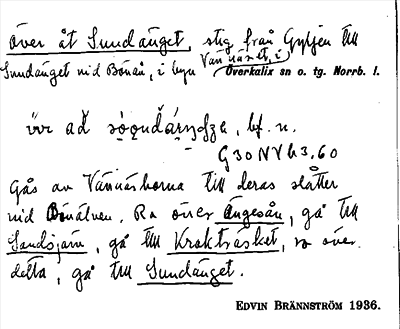 över åt Sundänget, stig från Gyljen till
Sundänget vid Bönån, i byn Vännäset, i
Överkalix sn o. tg. Norrb. l.
övr ad
bf. n.
G 30 NV h 3, 60
Gås av Vännäsborna till deras slåtter
vid älven. Ro över Ängesån, gå till
Sandsjärn, gå till Krokträsket, ro över
detta, gå till Sundänget.
EDVIN BRÄNNSTRÖM 1936.